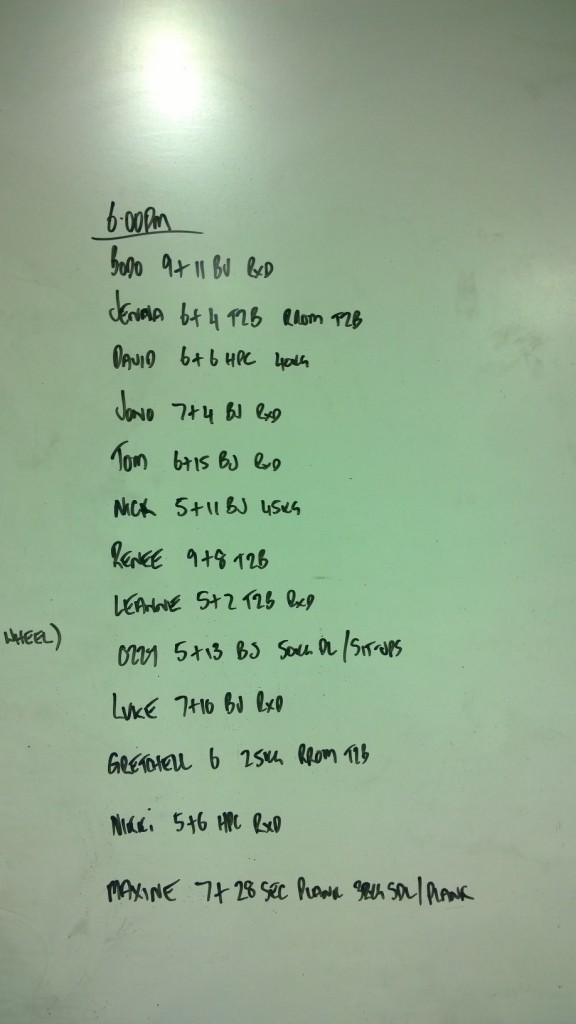 6.00PM
BODO 9+11 BJ RXD
JENNA 6+4 T2B RROM T2B
DAVID 6+6 HPC 40KG
JONO 7+4 BJ RXD
TOM 6+15 BJ RXD
NICK 5+11 BJ 45KG
RENEE 9+8 T2B
LEANNE 5+2 T2B RXD
WHEEL)
OZZY 5+13 BJ 50KG DL/SIT-UPS
LUKE 7+10 BJ RXD
GRETCHELL 6 25KG RROM T2B
NIKKI 5+6 HPC RXD
MAXINE 7+28 SEC PLANK SDL/PLANK